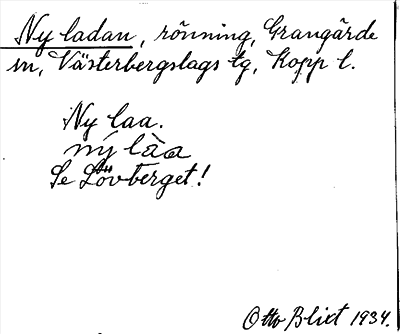 Ny ladan, rönning, Grangärde
sn, Västerbergslags tg, Kopp l.
Ny laa.
ný làa
Se Lövberget!
Otto Blixt 1934.